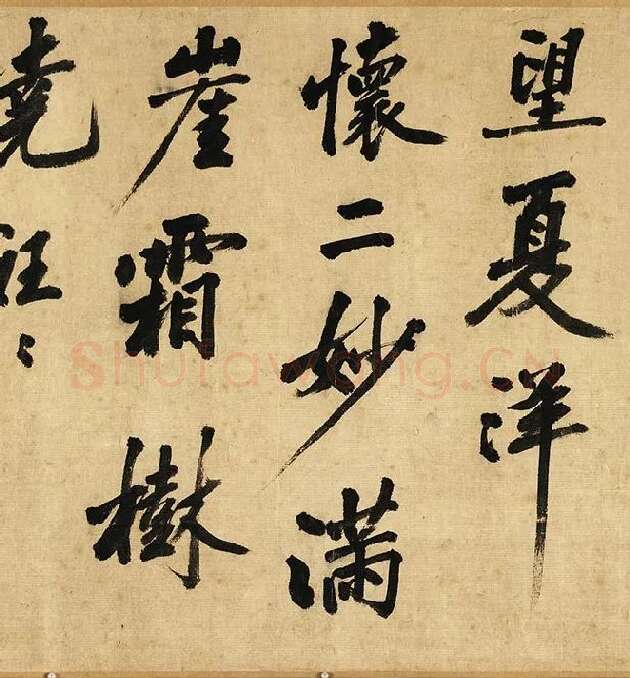 望夏洋
懷二妙滿
崖霜樹
Shufawang.CN